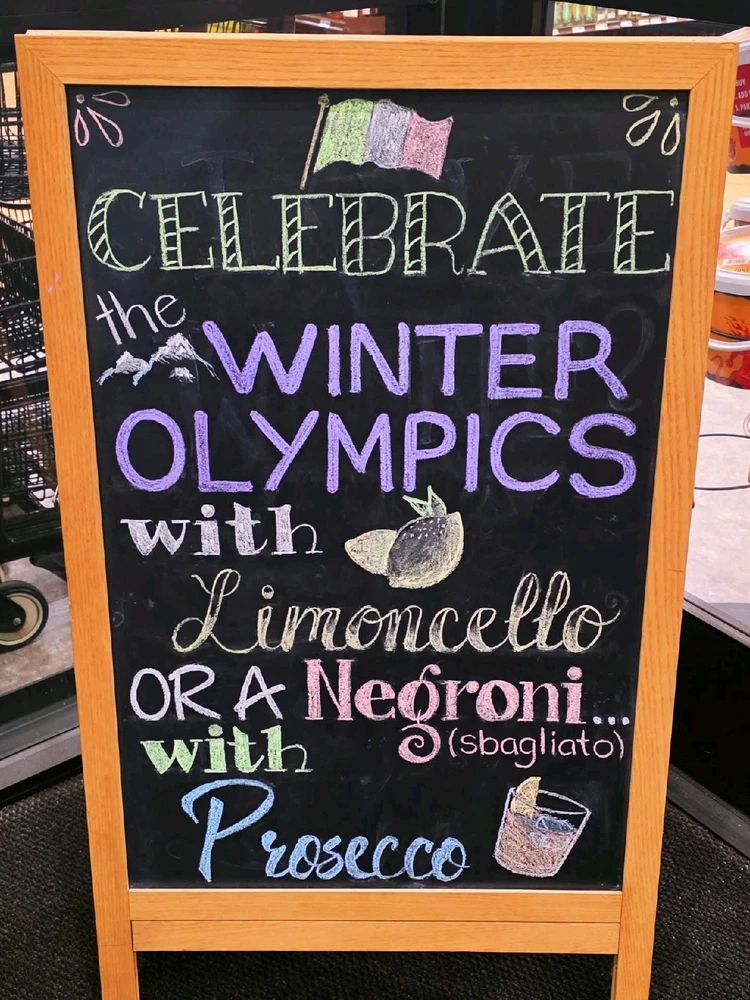 CELEBRATE
the
WINTER
OLYMPICS
with
Limoncello
OR A Negroni...
with (sbagliato)
Prosecco